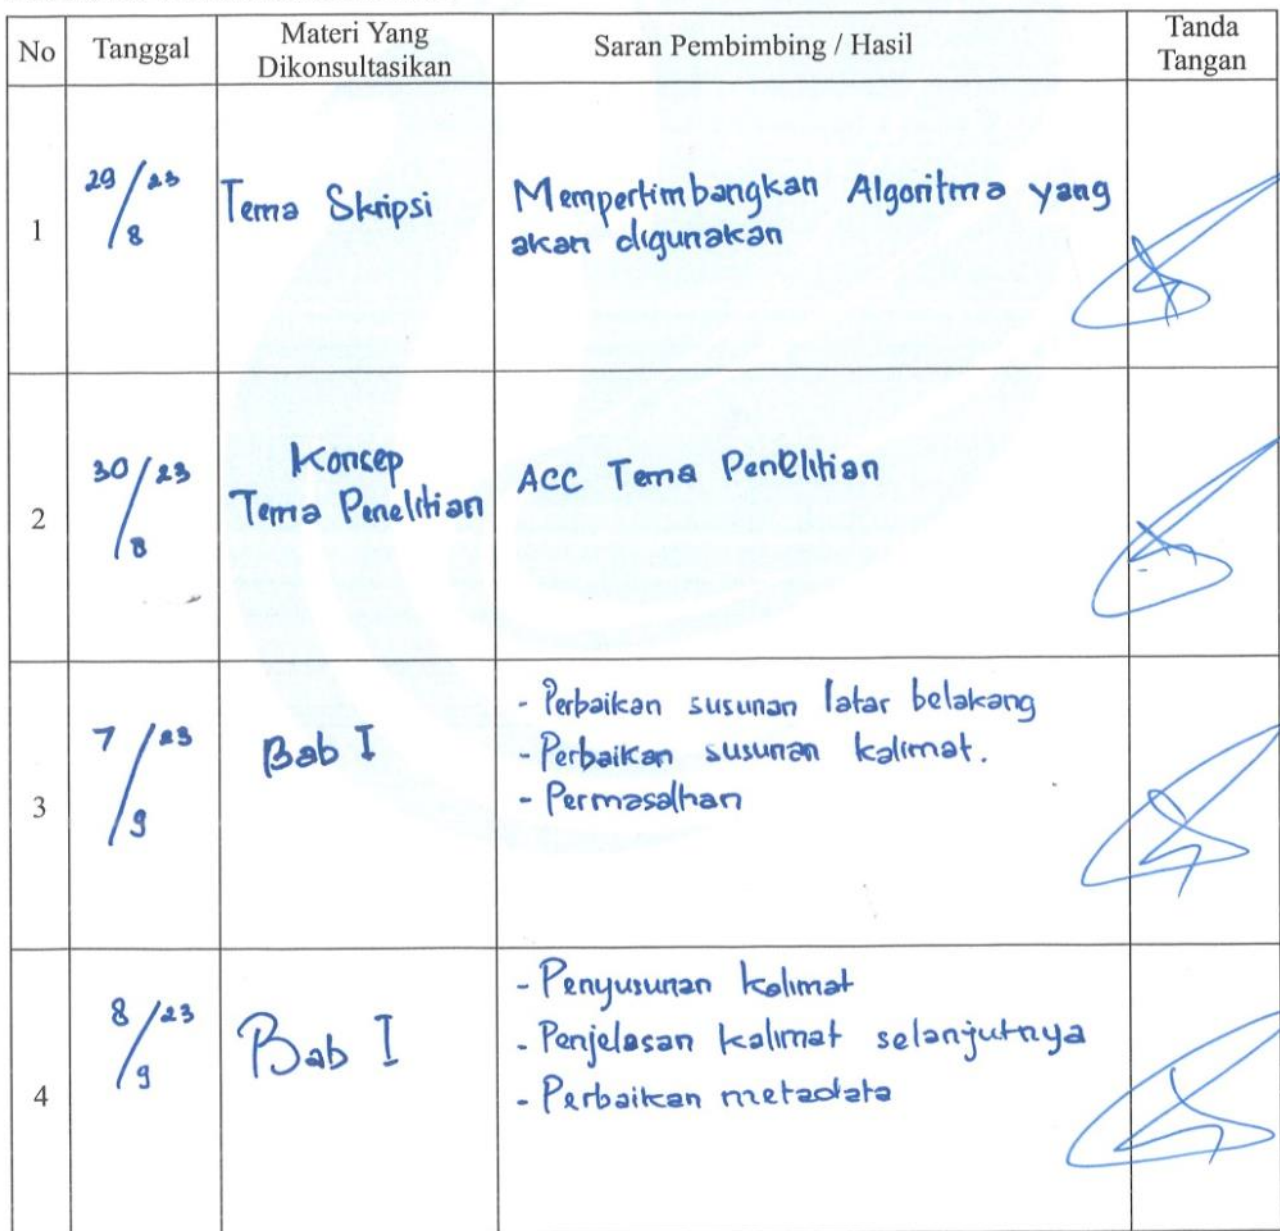 No Tanggal Materi Yang Dikonsultasikan Saran Pembimbing / Hasil Tanda Tangan
1 29/8 23 Tema Skripsi Mempertimbangkan Algoritma yang
akan digunakan
2 30/8 23 Konsep
Tema Penelitian ACC Tema Penelitian
3 7/9 23 Bab I - Perbaikan susunan latar belakang
- Perbaikan susunan kalimat.
- Permasalhan
4 8/9 23 Bab I - Penyusunan kalimat
- Penjelasan kalimat selanjutnya
- Perbaikan metadata